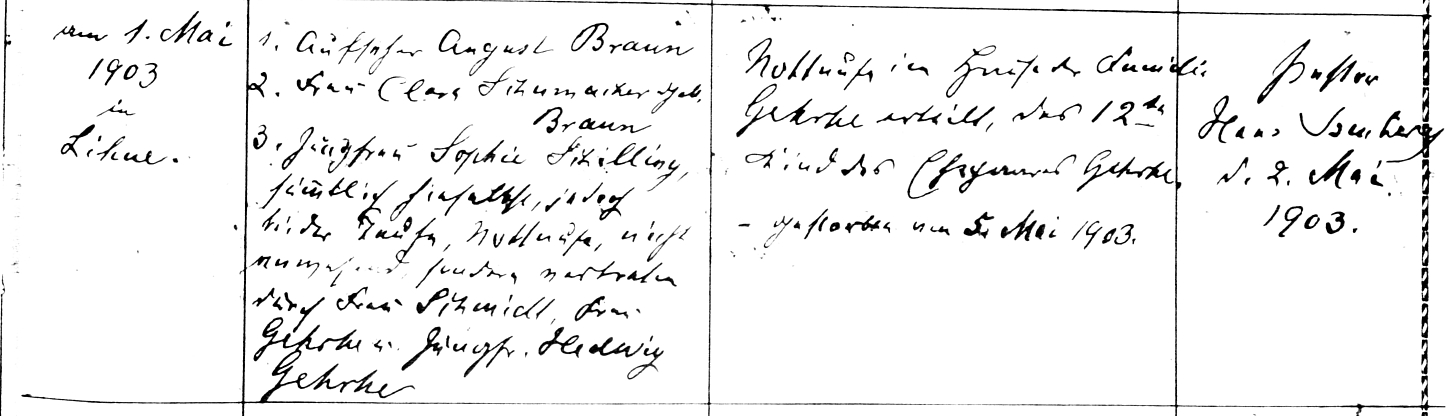 am 1. Mai
1903
in
Lihue.
1. Aufseher August Braun
2. Frau Clara Schumacher geb.
Braun
3. Jungfrau Sophie Schilling,
sämtlich hieselbst, jedoch
bei der Taufe, Nottaufe, nicht
anwesend, sondern vertreten
durch Frau Schmidt, Frau
Gehrke u. Jungfr. Hedwig
Gehrke
Nottaufe im Hause der Familie
Gehrke erteilt, das 12te
Kind des Ehepaares Gehrke.
- gestorben am 5. Mai 1903.
Pastor
Hans Isenberg
d. 2. Mai
1903.